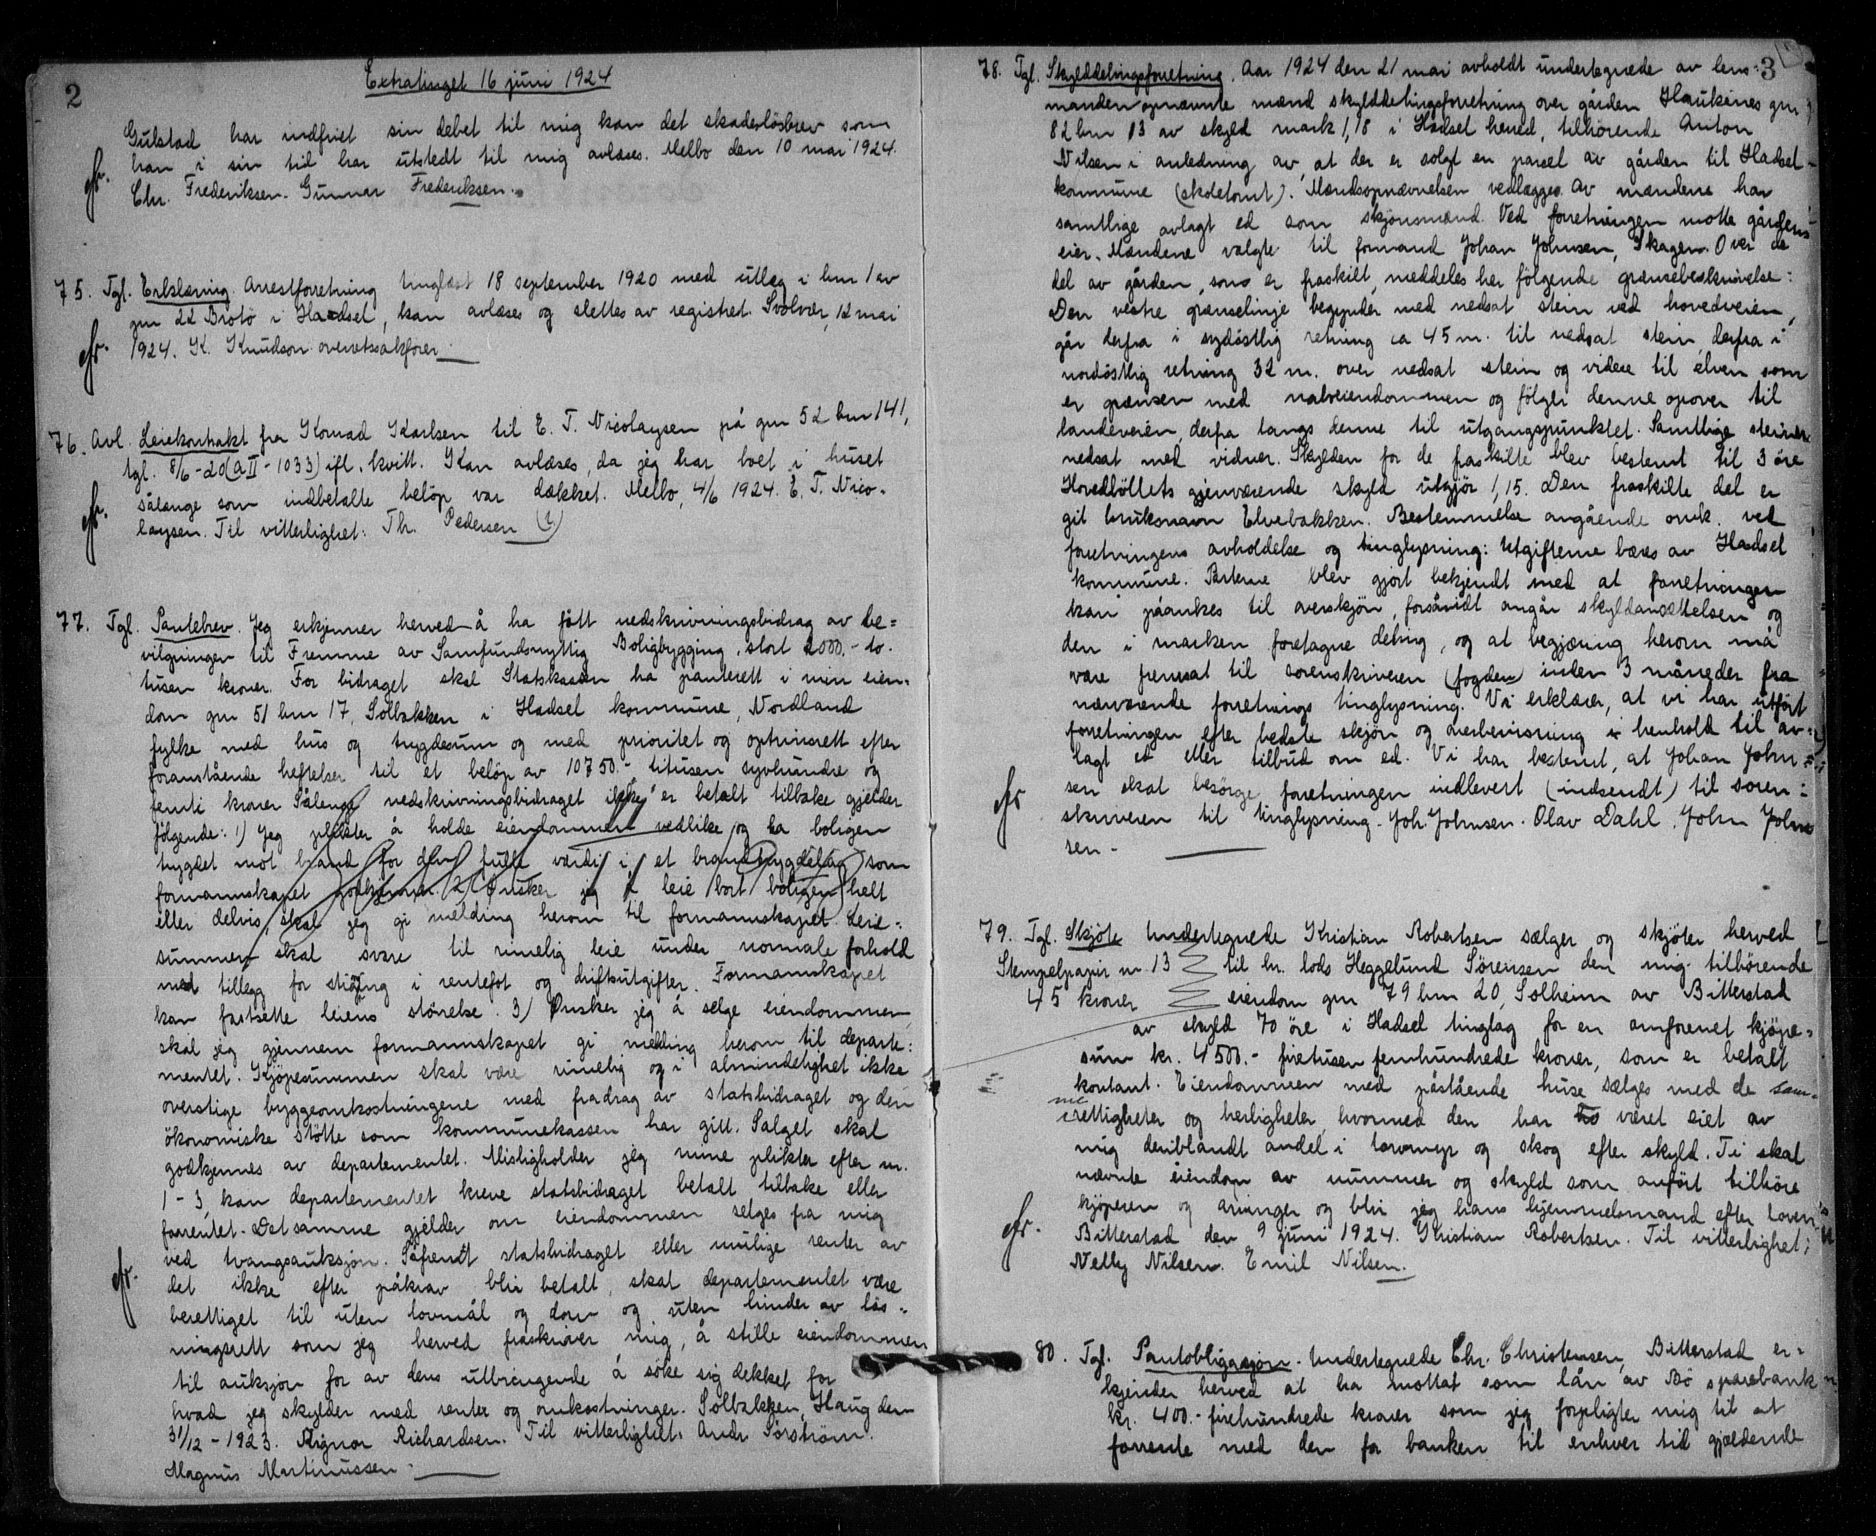 2
Extratinget 16 juni 1924
Gulstad har indfriet sin debet til mig kan det skadesløsbrev som
han i sin tid har utstedt til mig avlæses. Melbo den 10 mai 1924.
Chr. Frederiksen. Gunnar Frederiksen.
75. Tgl. Erklæring. Arrestforretning tinglæst 18 september 1920 med utlæg i bnr 1 av
gnr 22 Brotø i Hadsel, kan avlæses og slettes av registret. Svolvær, 12 mai
1924. K. Knudson overretssakfører
76. Avl. Leiekontrakt fra Konrad Karlsen til E. T. Nicolaysen på gnr 52 bnr 141,
tgl. 8/6-20 (a II - 1033) ifl. kvitt. Kan avlæses, da jeg har boet i huset
sålenge som indbetalte beløp var dækket. Melbo, 4/6 1924. E. T. Nico-
laysen. Til vitterlighet: Th. Pedersen
77. Tgl. Pantebrev. Jeg erkjenner herved å ha fått nedskrivningsbidrag av be=
vilgningen til Fremme av Samfundsnyttig Boligbygging, stort 2000.- to-
tusen kroner. For bidraget skal Statskassen ha panterett i min eien-
dom gnr 51 bnr 17, Solbakken i Hadsel kommune, Nordland
fylke med hus og trygdesum og med prioritet og optrinsrett efter
foranstående heftelser til et beløp av 10750.-, titusen syvhundre og
femti kroner Sålenge nedskrivningsbidraget ikke er betalt tilbake gjelder
følgende: 1) Jeg plikter å holde eiendommen vedlike og ha boligen
trygdet mot brand for den fulle værdi i et brandtrygdelag som
formannskapet godkjenner. 2) Ønsker jeg å leie bort boligen helt
eller delvis, skal jeg gi melding herom til formannskapet. Leie-
summen skal svare til rimelig leie under normale forhold
med tillegg for stigning i rentefot og driftsutgifter. Formannskapet
kan fastsette leiens størrelse. 3) Ønsker jeg å selge eiendommen,
skal jeg gjennem formannskapet gi melding herom til departe=
mentet. Kjøpesummen skal være rimelig og i almindelighet ikke
overstige byggeomkostningene med fradrag av statsbidraget og den
økonomiske støtte som kommunekassen har gitt. Salget skal
godkjennes av departementet. Misligholder jeg mine plikter efter nr.
1 - 3, kan departementet kreve statsbidraget betalt tilbake eller
forrentet. Det samme gjelder om eiendommen selges fra mig
ved tvangsauksjon. Såfremt statsbidraget eller mulige renter av
det ikke efter påkrav blir betalt, skal departementet være
berettiget til uten lovmål og dom og uten hinder av løs-
ningsrett som jeg herved fraskriver mig, å stille eiendommen
til auksjon for av dens utbringende å søke sig dekket for
hvad jeg skylder med renter og omkostninger. Solbakken, Haug den
31/12 - 1923. Rignor Richardsen. Til vitterlighet: Andr Sørstrøm.
Magnus Martinussen.
3
78. Tgl. Skylddelingsforretning. Aar 1924 den 21 mai avholdt undertegnede av lens-
manden opnævnte mænd skylddelingsforretning over gården Haukenes gnr
82 bnr 13 av skyld mark 1,18 i Hadsel herred, tilhørende Anton
Nilsen i anledning av, at der er solgt en parsel av gården til Hadsel
kommune (skoletomt). Mændsopnævnelsen vedlægges. Av mændene har
samtlige avlagt ed som skjønsmænd. Ved forretningen møtte gårdens
eier. Mændene valgte til formand Johan Johnsen, Skagen. Over de
del av gården, som er fraskilt, meddeles her følgende grænsebeskrivelse:
Den vestre grænselinje begynder med nedsat sten ved hovedveien,
går derfra i sydøstlig retning ca 45 m. til nedsat sten, derfra i
nordøstlig retning 32 m. over nedsat sten og videre til elven som
er grænsen med naboeiendommen og følger denne opover til
landeveien, derfra langs denne til utgangspunktet. Samtlige stener
nedsat med vidner. Skylden for de fraskilte blev bestemt til 3 øre
Hovedbøllets gjenværende skyld utgjør 1,15. Den fraskilte del er
git bruksnavn Elvebakken. Bestemmelse angående omk. ved
forretningens avholdelse og tinglysning: Utgifterne bæres av Hadsel
kommune. Parterne blev gjort bekjendt med at forretningen
kan påankes til overskjøn, forsåvidt angår skyldansættelsen og
den i marken foretagne deling, og at begjæring herom må
være fremsat til sorenskriveren (fogden) inden 3 måneder fra
nærværende forretnings tinglysning. Vi erklærer, at vi har utført
forretningen efter bedste skjøn og overbevisning i henhold til av=
lagt ed eller tilbud om ed. Vi har bestemt, at Johan John=
sen skal besørge forretningen indlevert (indsendt) til soren-
skriveren til tinglysning. Joh. Johnsen. Olav Dahl. John John
sen.
79. Tgl. Skjøte Undertegnede Kristian Robertsen sælger og skjøter herved
Stempelpapir nr. 13 til hr. lods Heggelund Sørensen den mig tilhørende
45 kroner eiendom gnr 79 bnr 20, Solheim av Bitterstad
av skyld 70 øre i Hadsel tinglag for en omforenet kjøpe=
sum kr. 4500.- firetusen femhundrede kroner, som er betalt
kontant. Eiendommen med påstående huse sælges med de sam-
me rettigheter og herligheter, hvormed den har været eiet av
mig deriblandt andel i torvmyr og skog efter skyld. Ti skal
nævnte eiendom av nummer og skyld som anført tilhøre
kjøperen og arvinger og blir jeg hans hjemmelsmand efter loven.
Bitterstad den 9 juni 1924. Kristian Robertsen. Til vitterlighet:
Nelly Nilsen. Emil Nilsen.
80. Tgl. Pantobligasjon. Undertegnede Chr. Christensen, Bitterstad er-
kjender herved at ha mottat som lån av Bø sparebank
kr. 400.- firehundrede kroner som jeg forpligter mig til at
forrente med den for banken til enhver tid gjældende